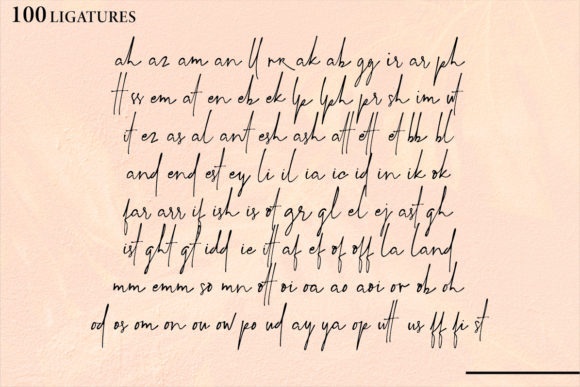 100 LIGATURES
ah az am an ll rr ak ab gg ir ar ph
tt ss em at en eb ek lp lph pr sh im ut
it ez as al ant esh ash att ett et bb bl
and end est ey li il ia ic id in ik ok
far arr if ish is ot gr gl el ej ast gh
ist ght gt idd ie itt af ef of off la land
mm emm so mn ott oi oa ao aoi or ob oh
od os om on ou ow po ud ay ya op utt us ff fi st